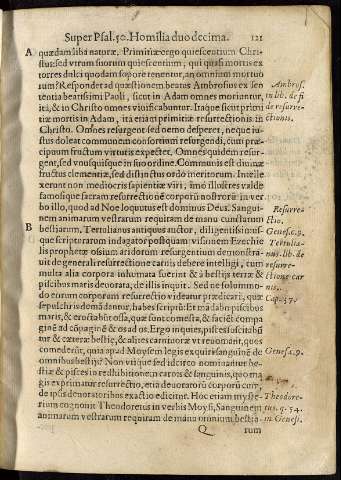 Super Psal.50. Homilia duodecima. 121
A quædam liba naturæ. Primitiæ ergo quiescentium Chri-
stus: sed vtrum suorum quiescentium, qui quasi mortis ex
torres dulci quodam sopore tenentur, an omnium mortuo
rum? Respondet ad quæstionem beatus Ambrosius ex sen
tentia beatissimi Pauli, sicut in Adam omnes moriuntur,
ità, & in Christo omnes viuificabuntur. Itaque sicut primi
tiæ mortis in Adam, ita etiam primitiæ resurrectionis in
Christo. Omnes resurgent sed nemo desperet, neque iu-
stus doleat commune consortium resurgendi, cum præ-
cipuum fructum virtutis expectet. Omnes quidem resur-
gent, sed vnusquisque in suo ordine. Communis est diuinæ
fructus clementiæ, sed distinctus ordo meritorum. Intelle
xerunt non mediocris sapientiæ viri, imò illustres valde
famosique sacram resurrectionē corporū nostrorū in ver-
bo illo, quod ad Noe loquutus est dominus Deus. Sangui-
nem animarum vestrarum requiram de manu cunctarum
B bestiarum, Tertulianus antiquus auctor, diligentissimus-
que scripturarum indagator postquam visionem Ezechie
lis prophetæ ossium aridorum resurgentium demonstra-
uit de generali resurrectione carnis debere intelligi, cum
multa alia corpora inhumata fuerint & à bestijs terræ &
piscibus maris deuorata, de illis inquit. Sed ne solummo-
do eorum corporum resurrectio videatur prædicari, quæ
sepulchris demādantur, habes scriptū: Et mādabo piscibus
maris, & eructabūt ossa, quæ sunt comesta, & faciēt compa
ginē ad cōpaginē & os ad os. Ergo inquies, pisces suscitabū
tur & cæteræ bestiæ, & alites carniuoræ vt reuomant, quos
comederūt, quia apud Moysem legis exquiri sanguinē de
omnibus bestijs? Non vtique sed idcirco nominantur be-
stiæ & pisces in redhibitionē carnis & sanguinis, quo ma
gis exprimatur resurrectio, etiā deuoratorū corporū cùm
de ipsis deuoratoribus exactio edicitur. Hoc etiam myste-
rium cognouit Theodoretus in verbis Moysi, Sanguinem
animarum vestrarum requiram de manu omnium bestia-
Q rum
Ambros.
in lib. de fi
de resurre-
ctionis.
Resurre-
ctio.
Genes.c.9.
Tertulia-
nus lib. de
resurre-
ctione car
nis.
Cap.37.
Genesa.9.
Theodore-
tus. q. 54.
in Genes.